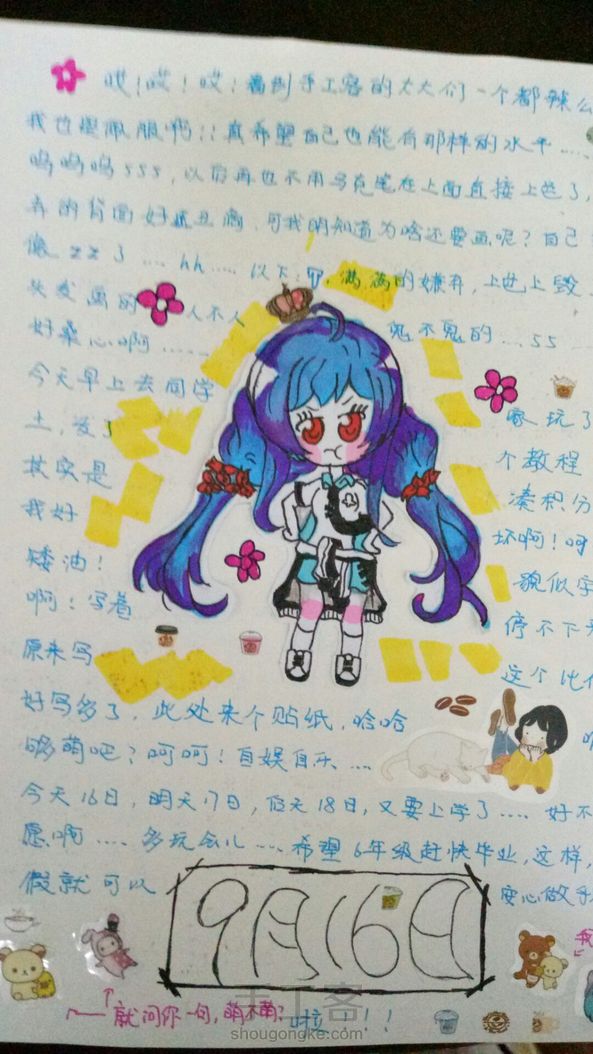 哎！哎！哎！看到手工客的大大们一个都辣么
我也是佩服啊！！真希望自己也能有那样的水平……
呜呜呜555，以后再也不用马克笔在上面直接上色了，
弄的背面好 ，可我明知道为啥还要画呢？自己
像zz了…… hh…… 以下：满满的嫌弃，上色上毁
头发画的 人不人 鬼不鬼的…55
好桑心啊……
今天早上去同学 家玩了
土，发了 个教程
其实是 凑积分
我好 坏啊！呵
矮油！ 貌似字
啊！写着 停不下
原来写 这个比
好写多了，此处来个贴纸，哈哈
够萌吧？呵呵！自娱自乐…
今天16日，明天17日，后天18日，又要上学了…. 好不
愿啊…. 多玩会儿…. 希望6年级赶快毕业，这样，
假就可以 安心做手
9月16日
就问你一句，萌不萌？
啦！！！
手工客
shougongke.com